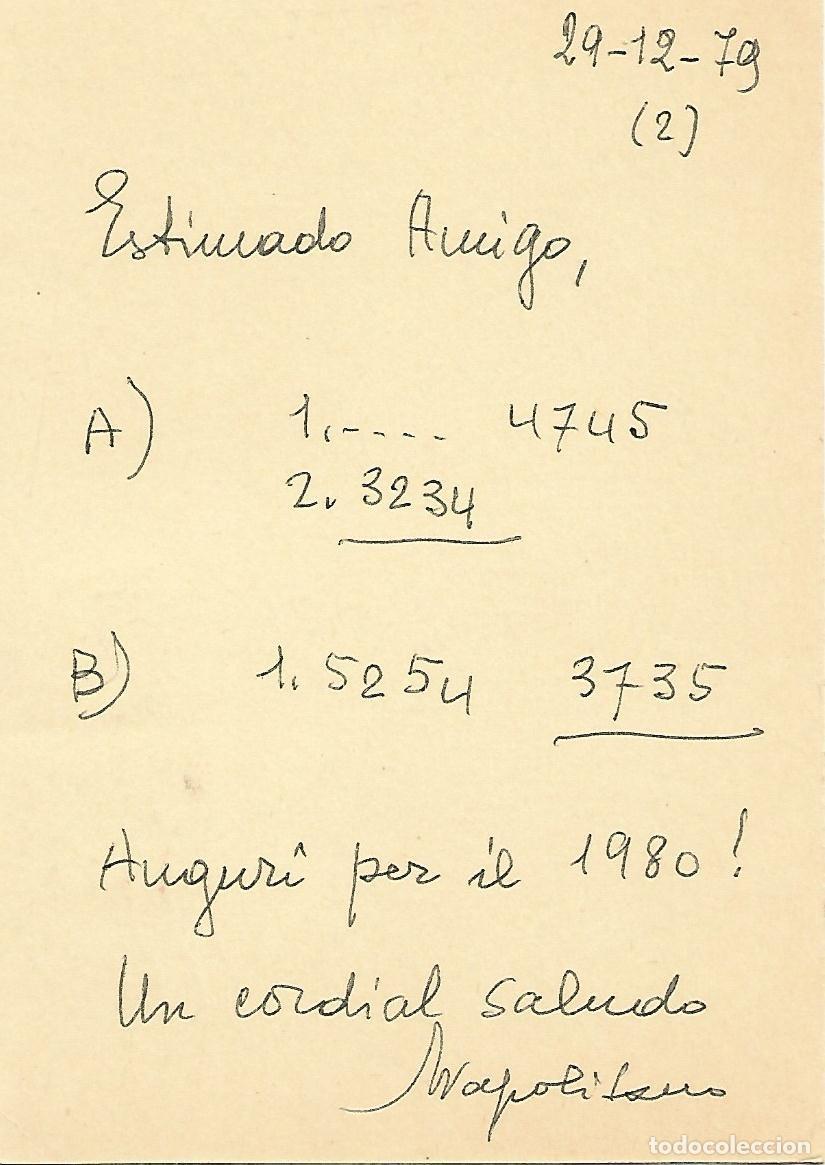 29-12-79
(2)
Estimado Amigo,
A) 1. ---- 4745
2. 3234
B) 1. 5254 3735
Auguri per il 1980!
Un cordial saludo
Napolitano
todocoleccion